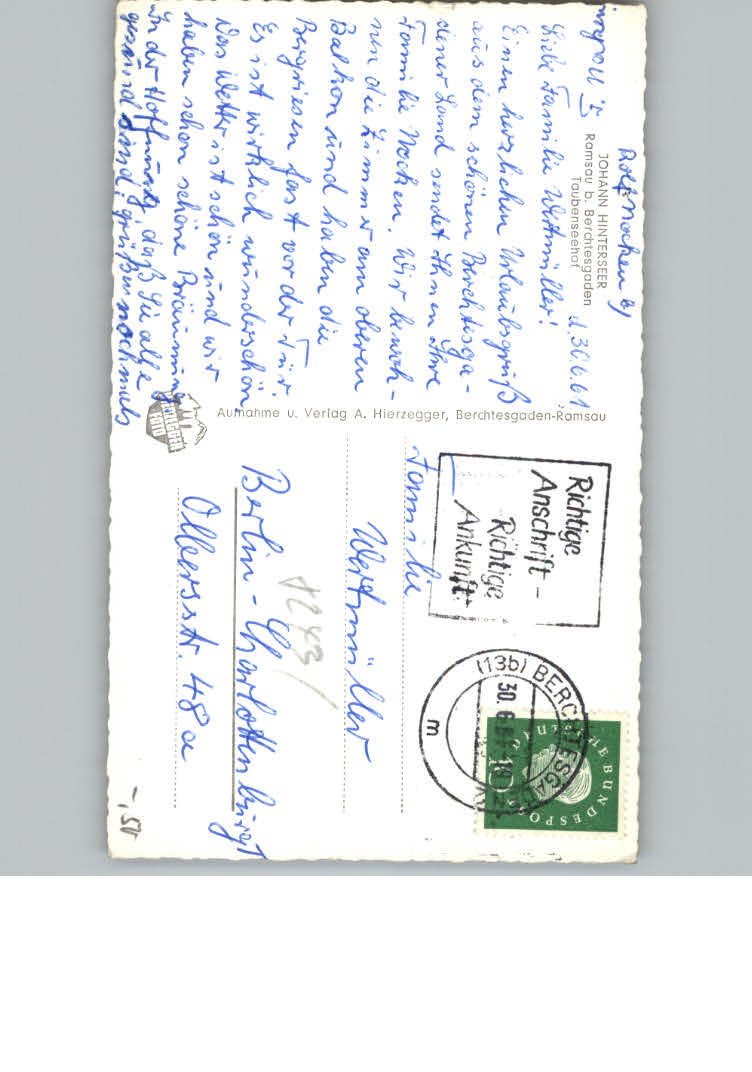 JOHANN HINTERSEER
Ramsau b. Berchtesgaden
Taubenseehof
d. 30.6.61.
Liebe Familie Wertmüller!
Einen herzlichen Urlaubsgruß
aus dem schönen Berchtesga-
dener Land sendet Ihnen Ihre
Familie Nochen. Wir bewoh-
nen die Zimmer am oberen
Balkon und haben die
Bergriesen fast vor der Tür.
Es ist wirklich wunderschön.
Das Wetter ist schön und wir
haben schon schöne Bräunung.
In der Hoffnung, daß Sie alle
gesund sind, grüßen nochmals
Rolf Nochen u.
Aufnahme u. Verlag A. Hierzegger, Berchtesgaden-Ramsau
Richtige
Anschrift -
Richtige
Ankunft!
(13b) BERCHTESGADEN
30. 6. 61-18
m
DEUTSCHE BUNDESPOST
Familie
Wertmüller
Berlin-Charlottenburg 1
Olbersstr. 48a
-,50